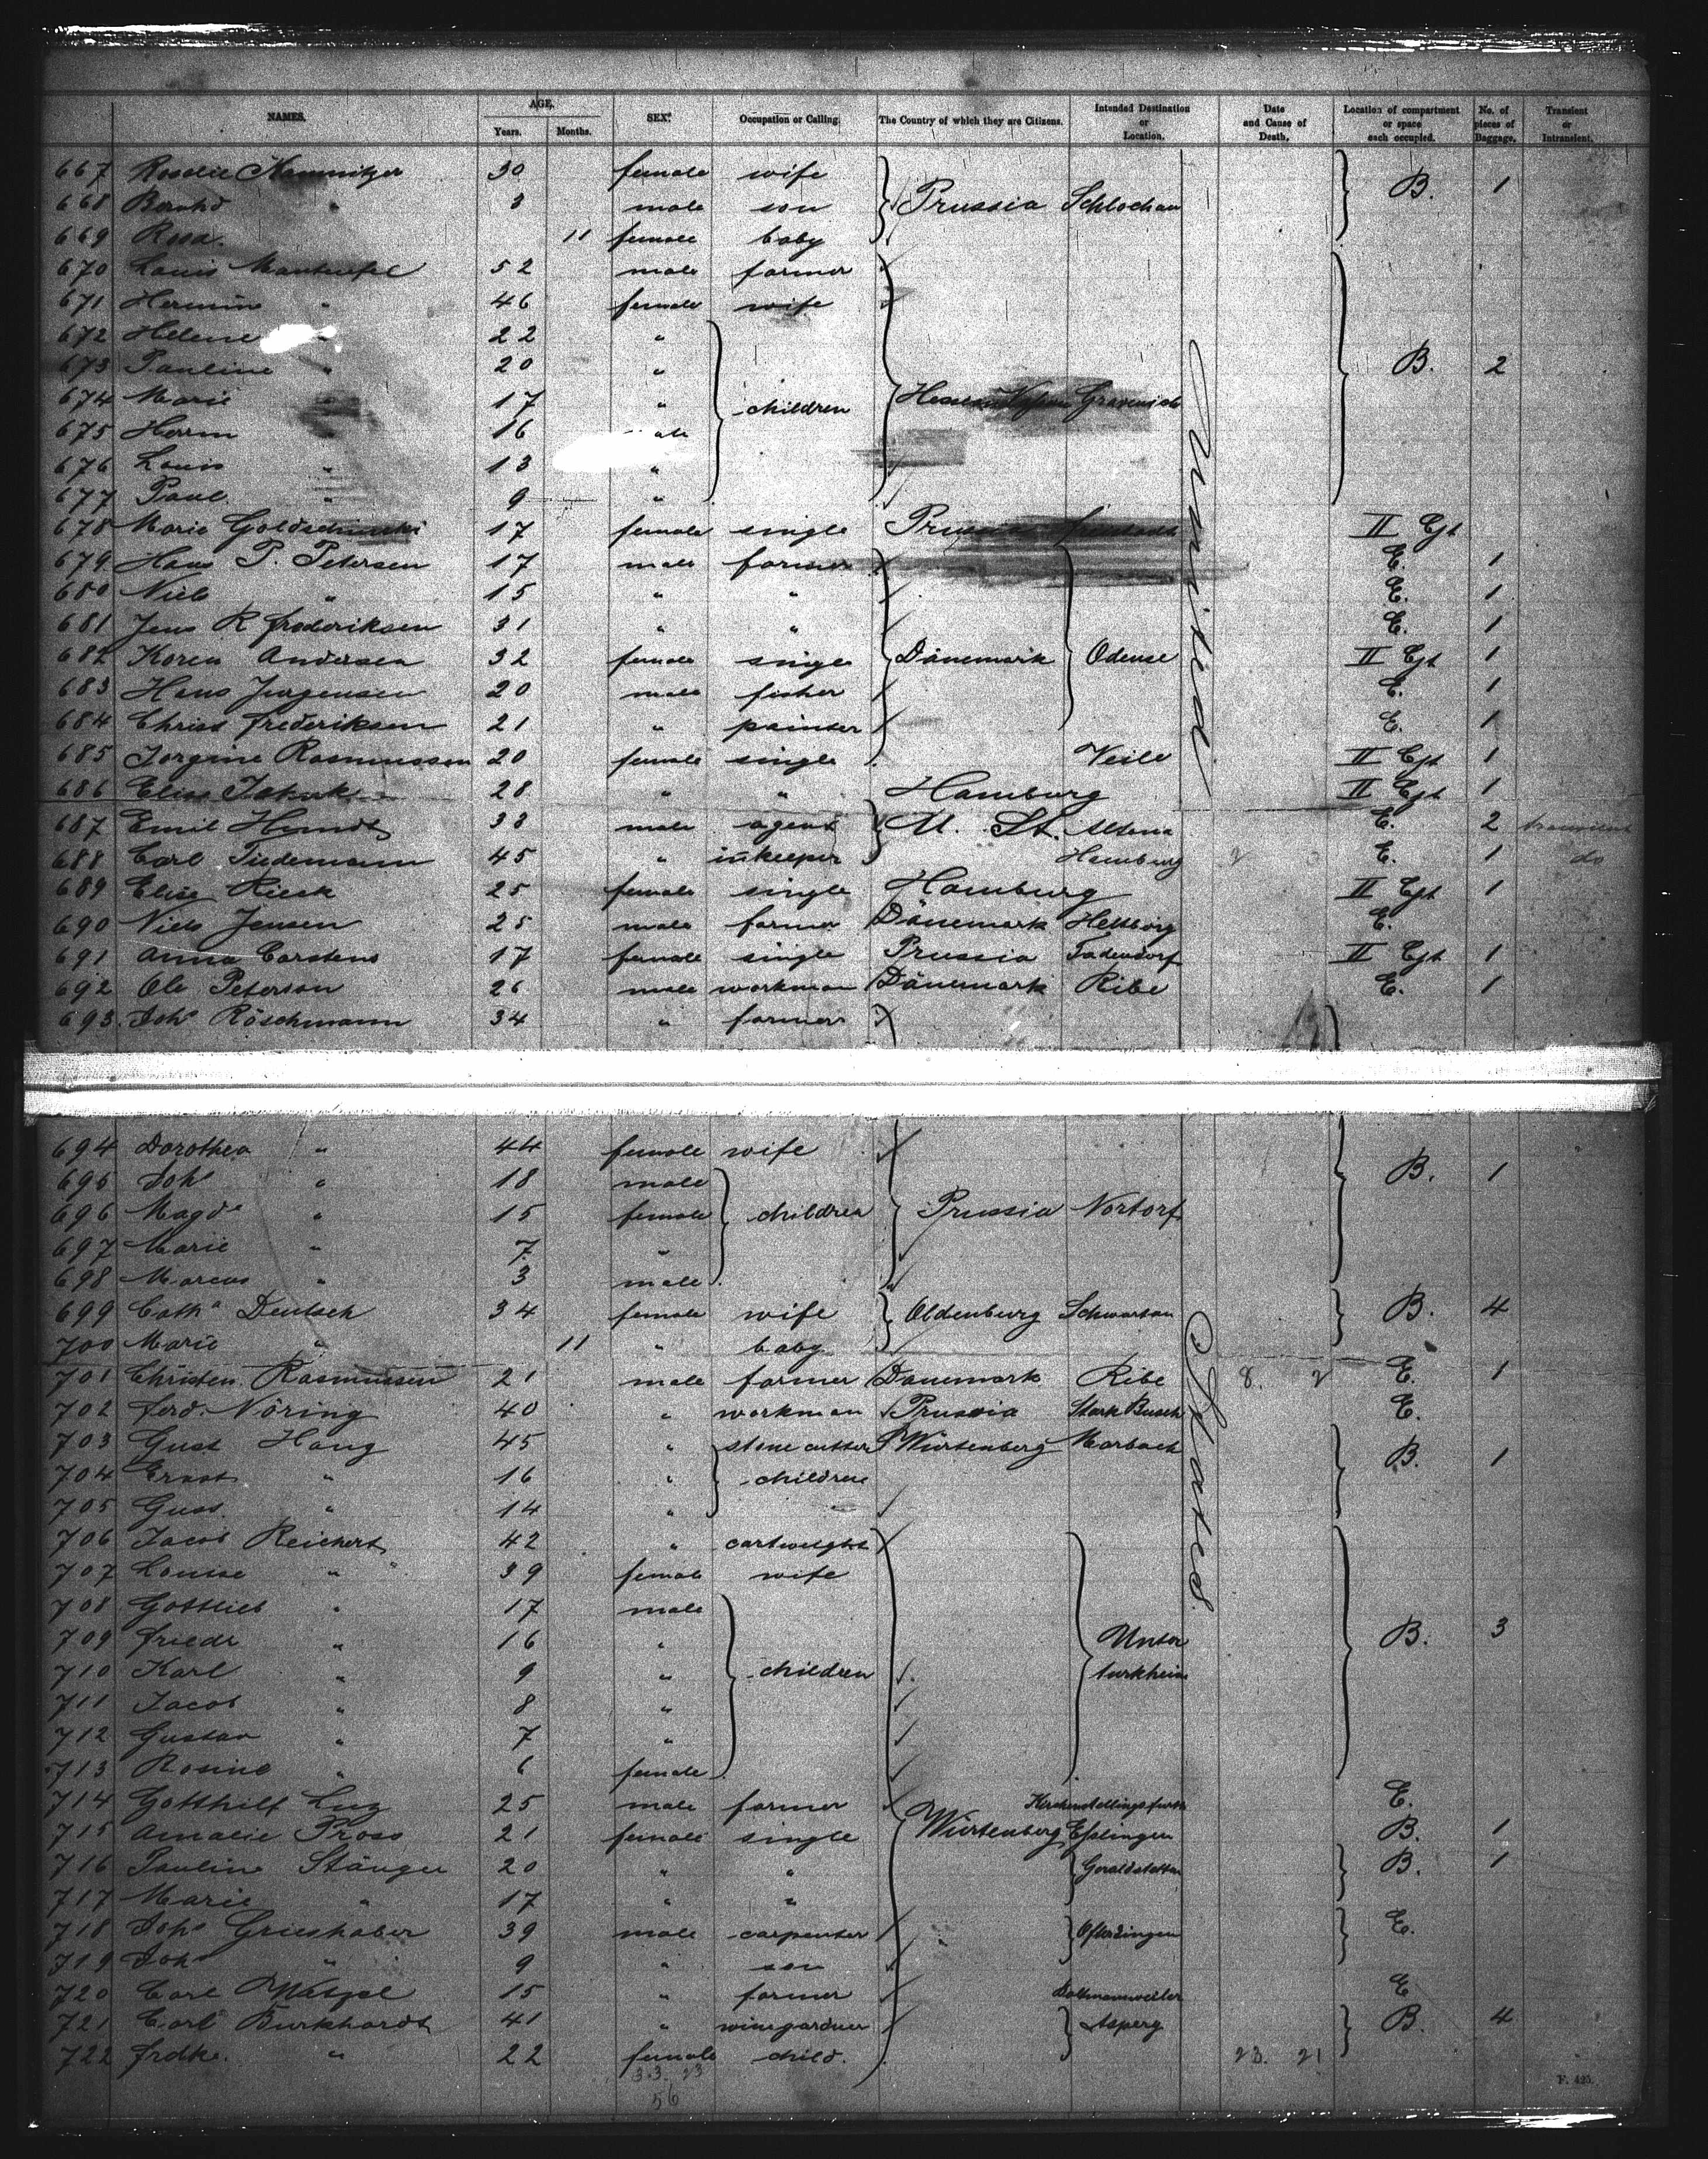 NAMES. AGE. Years. Months. SEX. Occupation or Calling. The Country of which they are Citizens. Intended Destination or Location. Date and Cause of Death. Location of compartment or space each occupied. No. of pieces of Baggage. Transient or Intransient.
667 Rosalie 30 female wife
668 3 male son Prussia Schlochau B. 1
669 Rosa 11 female baby
670 Louis Manteufel 52 male farmer
671 Hermine " 46 female wife
672 Helene " 22 "
673 Pauline " 20 " B. 2
674 Marie " 17 " children
675 Herm 16
676 Louis " 13 "
677 Paul " 9 "
678 Marie 17 female single II Cjt
679 Hans P. Petersen 17 male farmer E. 1
680 Niels " 15 " " E. 1
681 Jens R Frederiksen 31 " " E. 1
682 Karen Andersen 32 female single Dänemark Odense II Cjt 1
683 Hans Jurgensen 20 male fisher E. 1
684 Christ Frederiksen 21 " painter E. 1
685 Jorgine Rasmussen 20 female single Veile II Cjt 1
686 Elise 28 " " Hamburg II Cjt 1
687 Emil 33 male agent U. St. Altona E. 2 transient
688 Carl Tiedemann 45 " inkeeper Hamburg E. 1 do
689 Elise Rieck 25 female single Hamburg II Cjt 1
690 Niels Jensen 25 male farmer Dänemark E.
691 Anna Carstens 17 female single Prussia II Cjt 1
692 Ole Peterson 26 male workman Dänemark Ribe E. 1
693. Joh Röschmann 34 " farmer
United
694 Dorothea " 44 female wife
695 Joh " 18 male B. 1
696 Magd " 15 female children Prussia Nortorf
697 Marie " 7 "
698 Marcus " 3 male
699 Cath Deutsch 34 female wife Oldenburg Schwartau B. 4
700 Marie " 11 " baby
701 Christen Rasmussen 21 male farmer Danemark Ribe 8. 2 E. 1
702 Ferd. Nöring 40 " workman Prussia Stark Busch E.
703 Gust Haug 45 " stone cutter Würtenberg Marbach B. 1
704 Ernst " 16 " children
705 Gust " 14 "
706 Jacob Reichert 42 " cartwright
707 Louise " 39 female wife
708 Gottlieb " 17 male
709 Friedr " 16 " Unter B. 3
710 Karl " 9 " children turkheim
711 Jacob " 8 "
712 Gustav " 7 "
713 Rosine " 6 female
714 Gotthilf Lug 25 male farmer E.
715 Amalie Pross 21 female single Würtenberg Esslingen B. 1
716 Pauline Stänger 20 " " B. 1
717 Marie " 17 " "
718 Joh Grieshaber 39 male carpenter Ofterdingen E.
719 Joh " 9 " son
720 Carl 15 " farmer E
721 Carl Burkhardt 41 " winegardner Asperg B. 4
722 Frdke. " 22 female child. 23. 21
States
33. 23
56
F. 425.